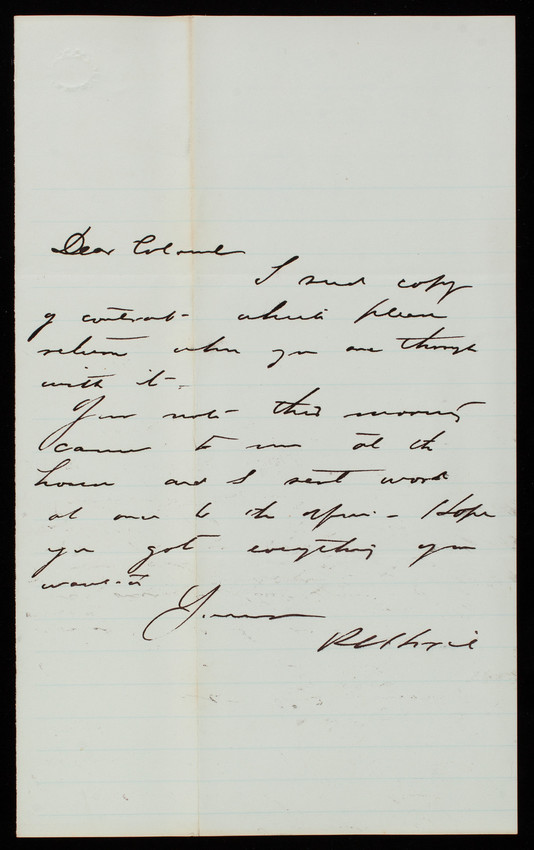 Dear Colonel
I send copy
of contract which please
return when you are through
with it.
Your note this morning
came to me at the
house and I sent word
at once to the office - Hope
you got everything you
wanted
Yours